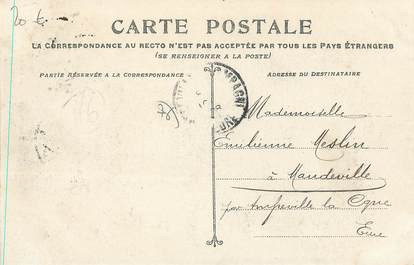 20 €
CARTE POSTALE
LA CORRESPONDANCE AU RECTO N'EST PAS ACCEPTÉE PAR TOUS LES PAYS ÉTRANGERS
(SE RENSEIGNER A LA POSTE)
PARTIE RÉSERVÉE A LA CORRESPONDANCE
ADRESSE DU DESTINATAIRE
Mademoiselle
Emilienne Meslin
à Mandeville
par Ampreville la Cgne
Eure